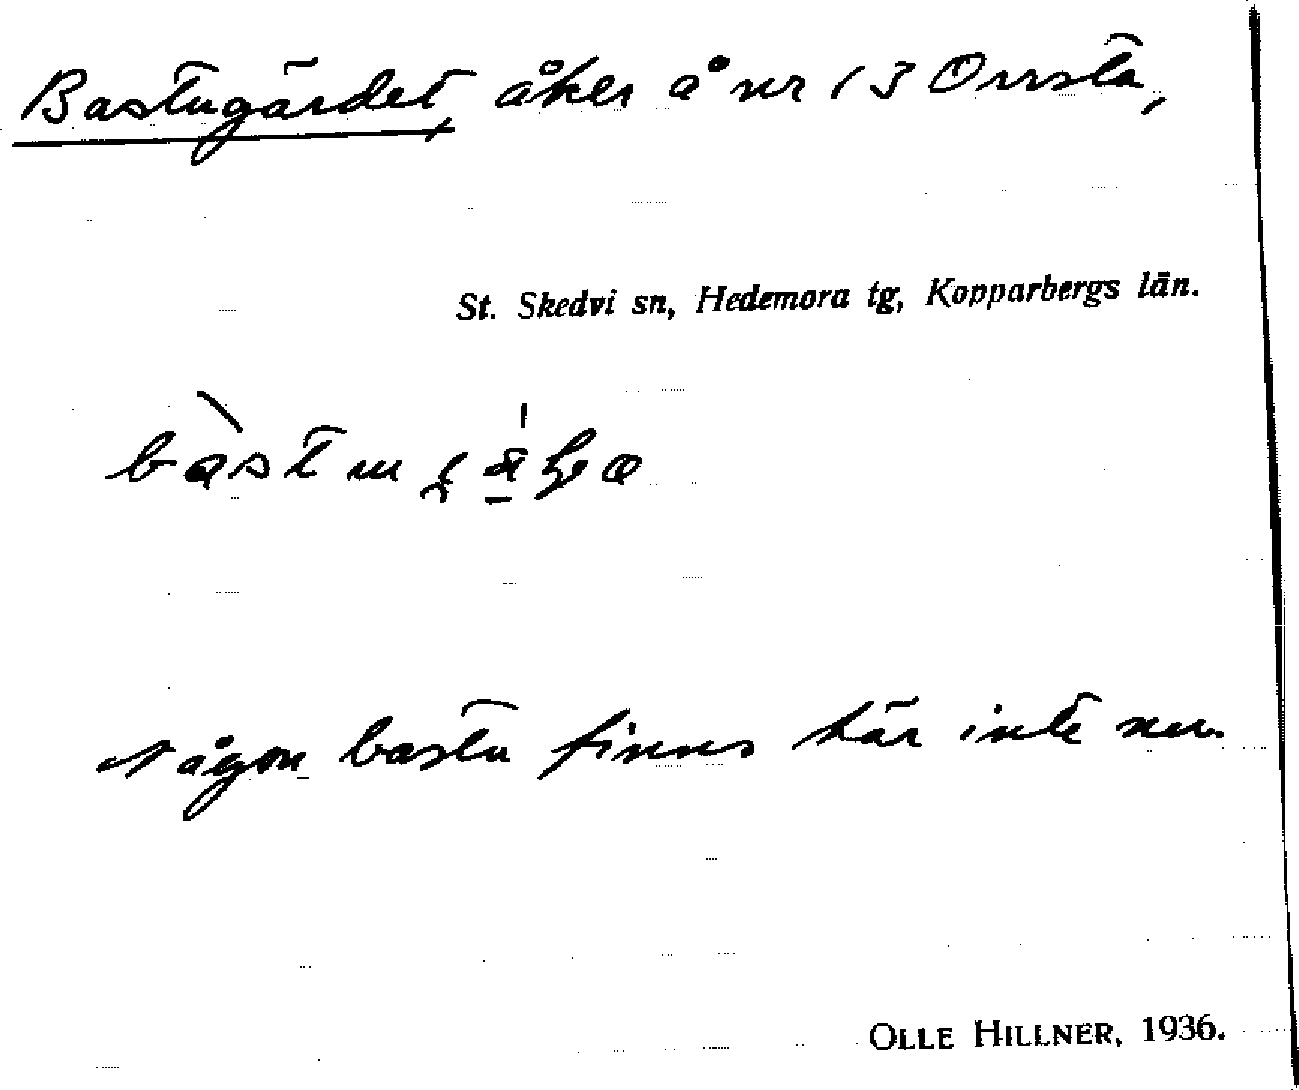 Bastugärdet, åker å nr 13 Orrsta,
St. Skedvi sn, Hedemora tg, Kopparbergs län.
Någon bastu finns här inte nu.
OLLE HILLNER, 1936.